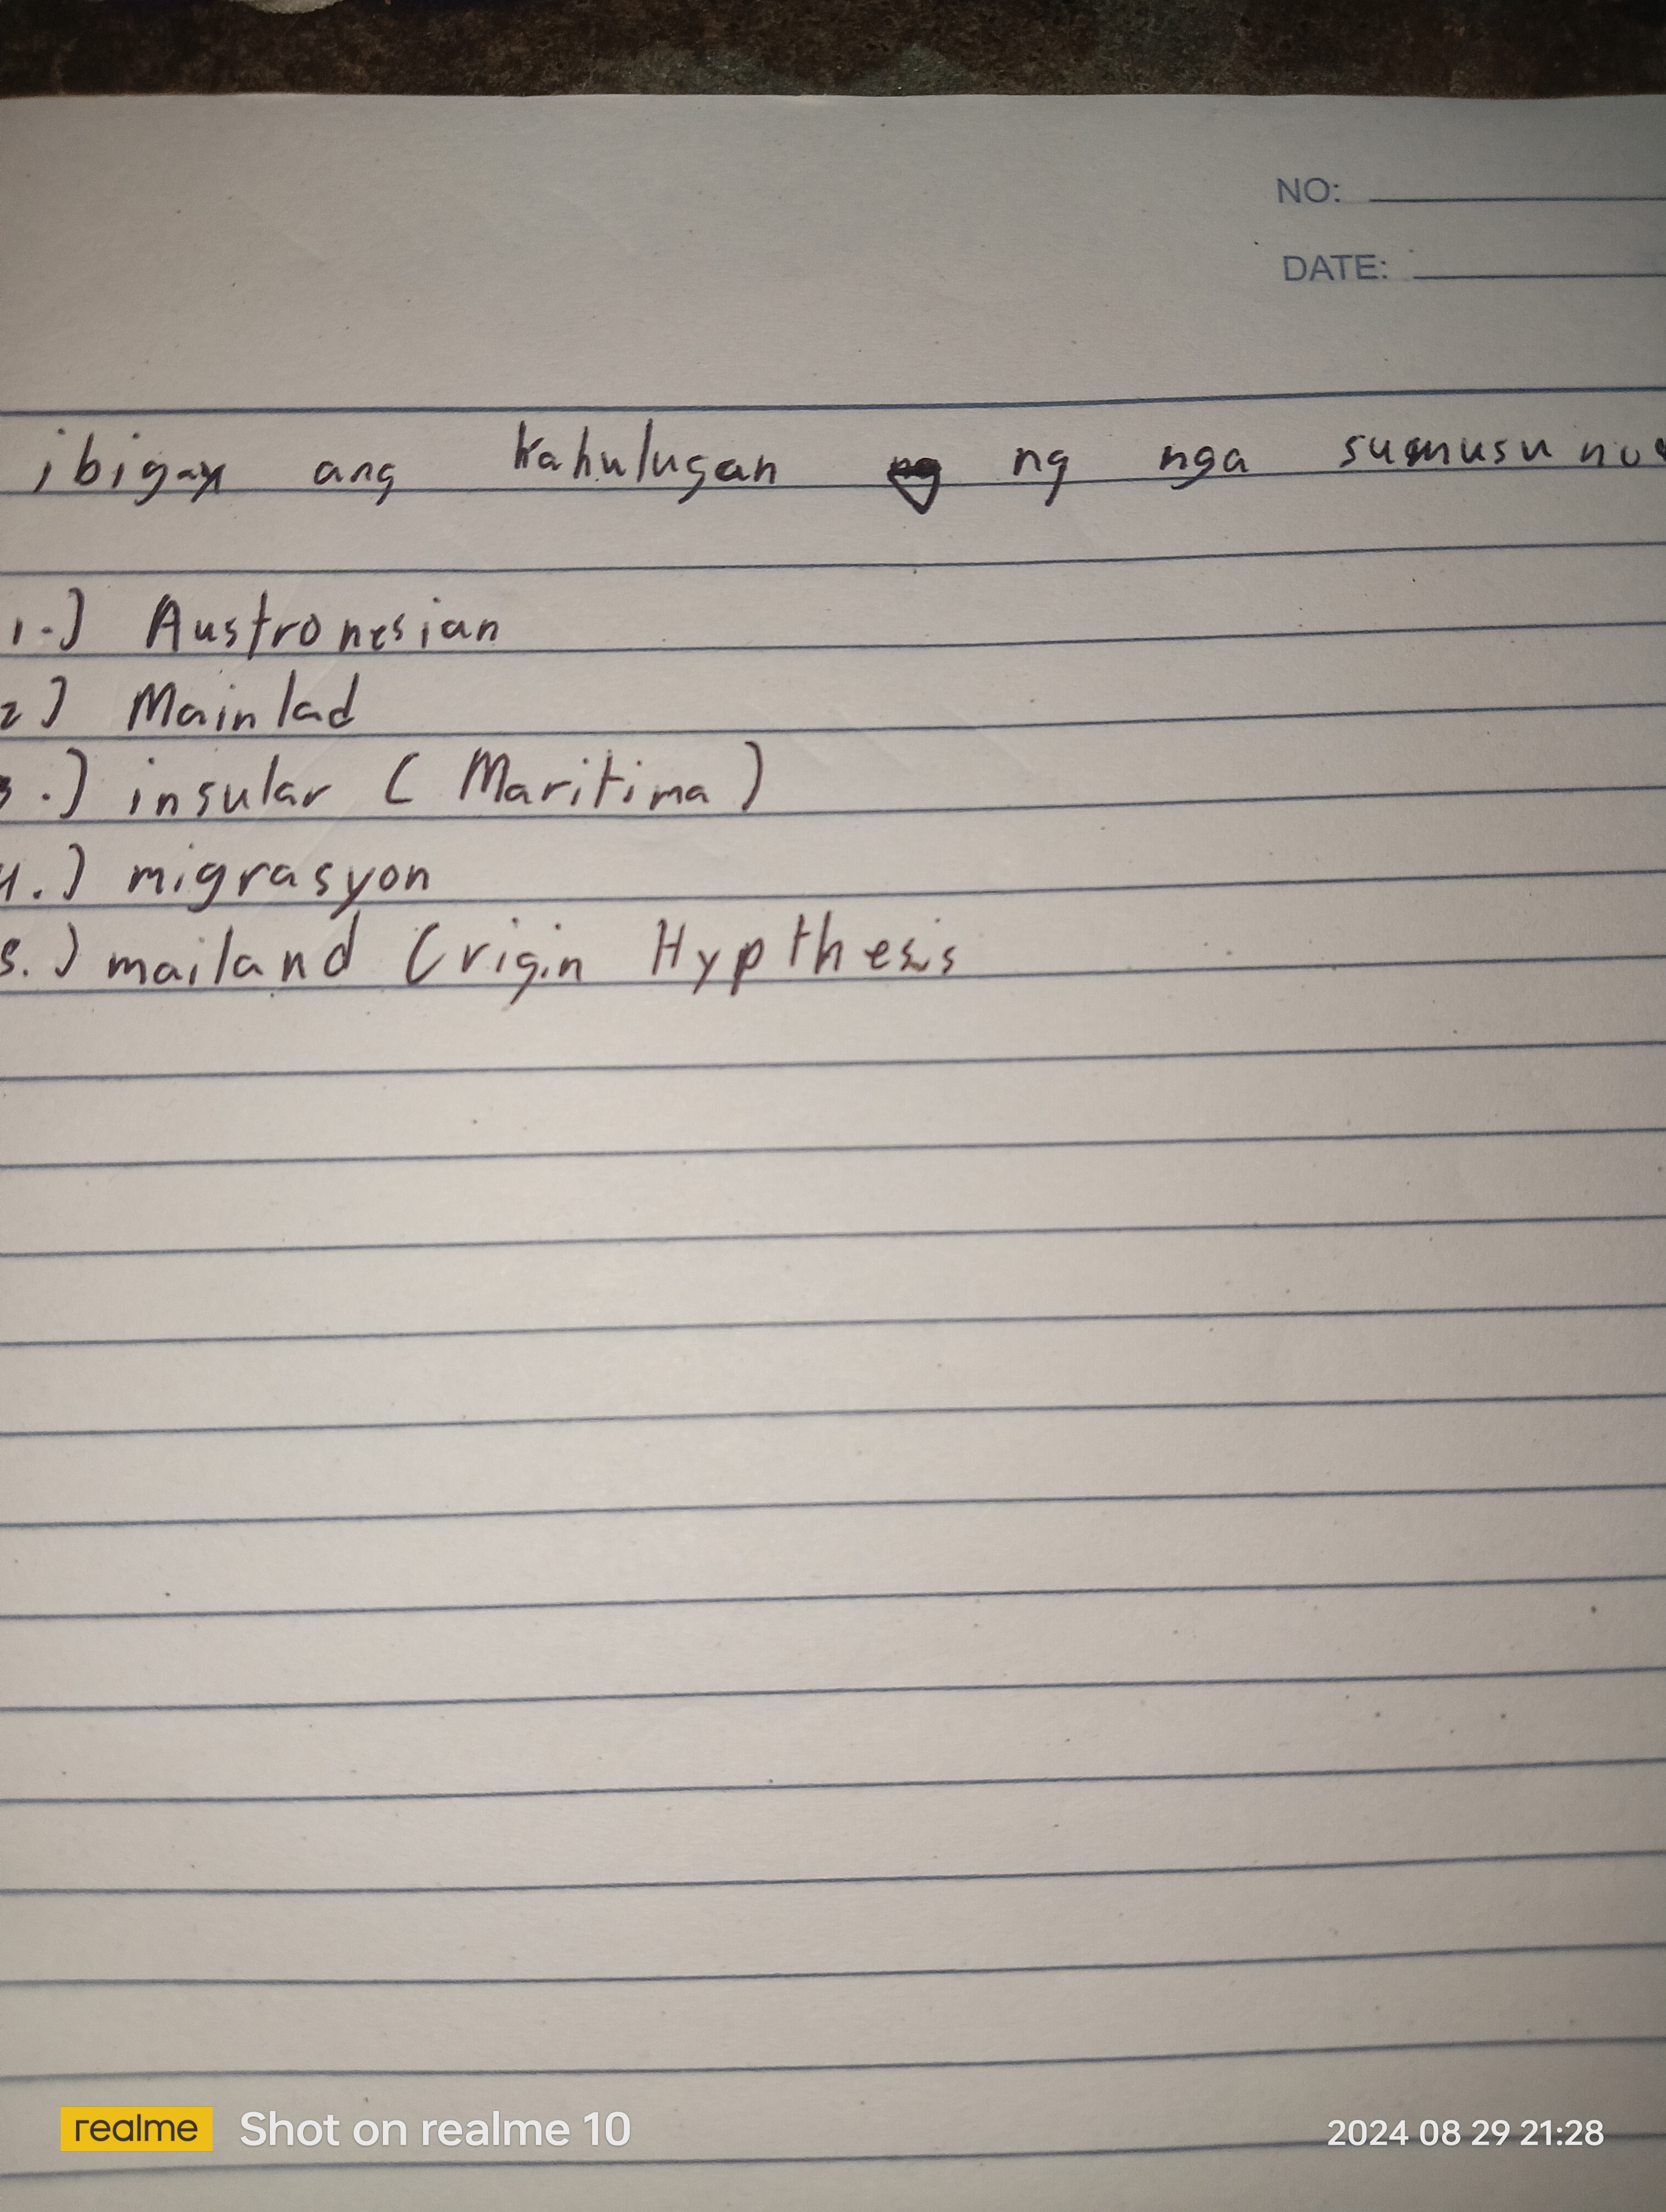 NO:
DATE:
ibigay ang kahulugan ng ng nga
1.) Austronesian
2) Mainlad
3.) insular ( Maritima )
4.) migrasyon
5.) mailand Origin Hypthesis
realme Shot on realme 10
2024 08 29 21:28